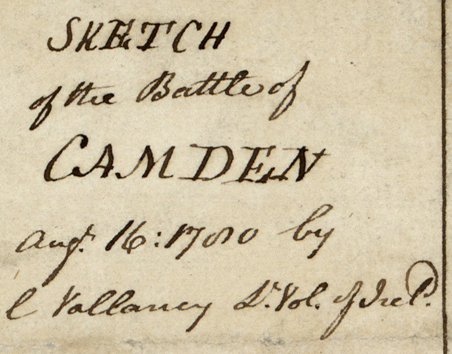 SKETCH
of the Battle of
CAMDEN
Augt. 16: 1780 by
C Vallancy Lt. Vol. of Ireld.